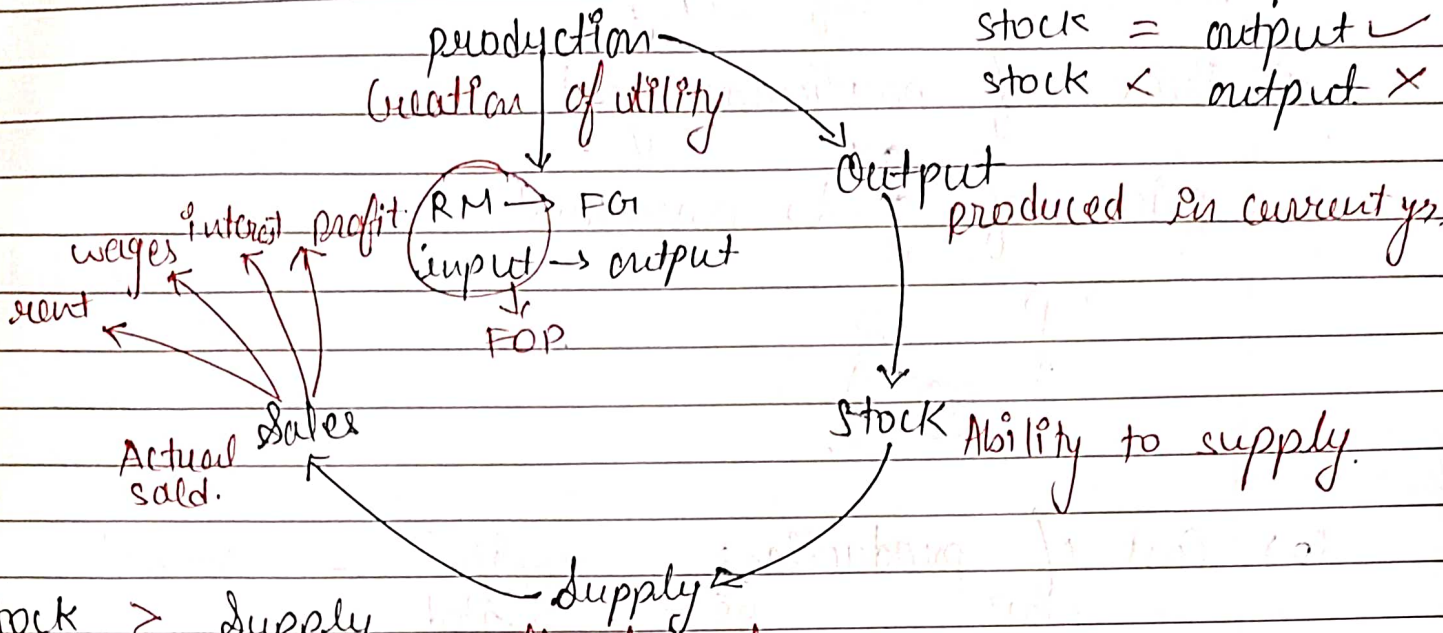 production
stock = output ✓
stock < output ×
Creation of utility
Output
produced in current yr.
RM → FG
input → output
FOP.
rent
wages
interest
profit
Sales
Actual
sald.
Stock
Ability to supply.
Supply
ock > Supply